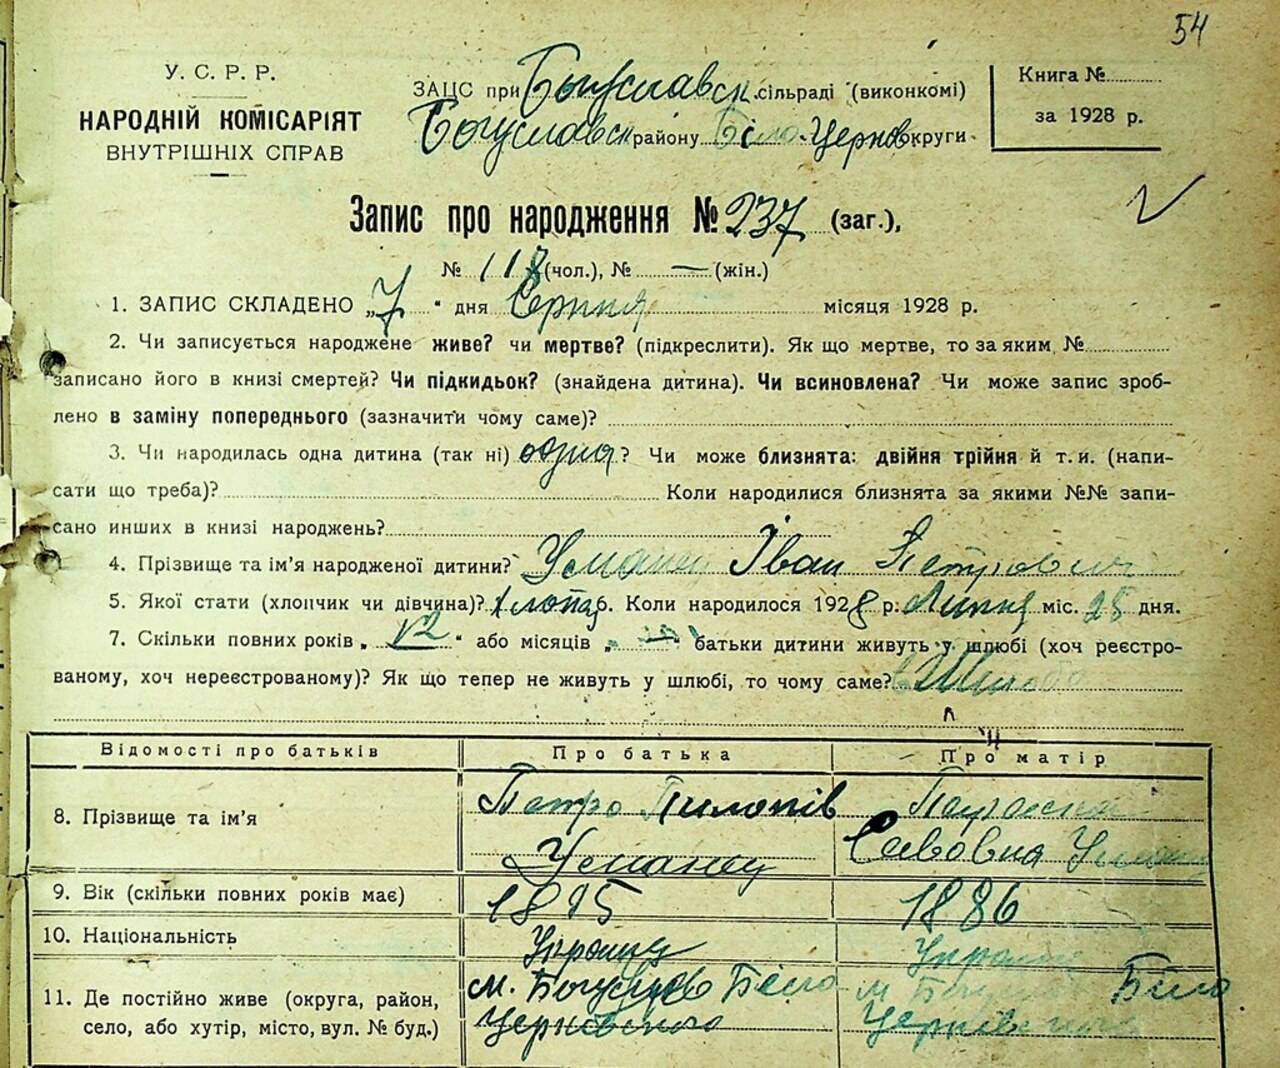 54
У. С. Р. Р.
НАРОДНІЙ КОМІСАРІЯТ
ВНУТРІШНІХ СПРАВ
ЗАЦС при Богуславск. сільраді (виконкомі)
Богуславск району Біло-Церков округи
Книга №
за 1928 р.
Запис про народження № 237 (заг.),
№ 118 (чол.), № — (жін.)
1. ЗАПИС СКЛАДЕНО „7" дня Серпня місяця 1928 р.
2. Чи записується народжене живе? чи мертве? (підкреслити). Як що мертве, то за яким №
записано його в книзі смертей? Чи підкидьок? (знайдена дитина). Чи всиновлена? Чи може запис зроб-
лено в заміну попереднього (зазначити чому саме)?
3. Чи народилась одна дитина (так ні) одна? Чи може близнята: двійня трійня й т. и. (напи-
сати що треба)? Коли народилися близнята за якими №№ запи-
сано инших в книзі народжень?
4. Прізвище та ім'я народженої дитини? Уманец Іван Петрович
5. Якої стати (хлопчик чи дівчина)? хлопец 6. Коли народилося 1928 р. Липня міс. 25 дня.
7. Скільки повних років „ 12 " або місяців „ — " батьки дитини живуть у шлюбі (хоч реєстро-
ваному, хоч нереєстрованому)? Як що тепер не живуть у шлюбі, то чому саме?
Відомості про батьків Про батька Про матір
8. Прізвище та ім'я Петро Пилипів Параска
Уманец Савовна Уманец
9. Вік (скільки повних років має) 1895 1896
10. Національність
11. Де постійно живе (округа, район, м. Богуслав Біло м Богуслав Біло
село, або хутір, місто, вул. № буд.) Церковского Церковского